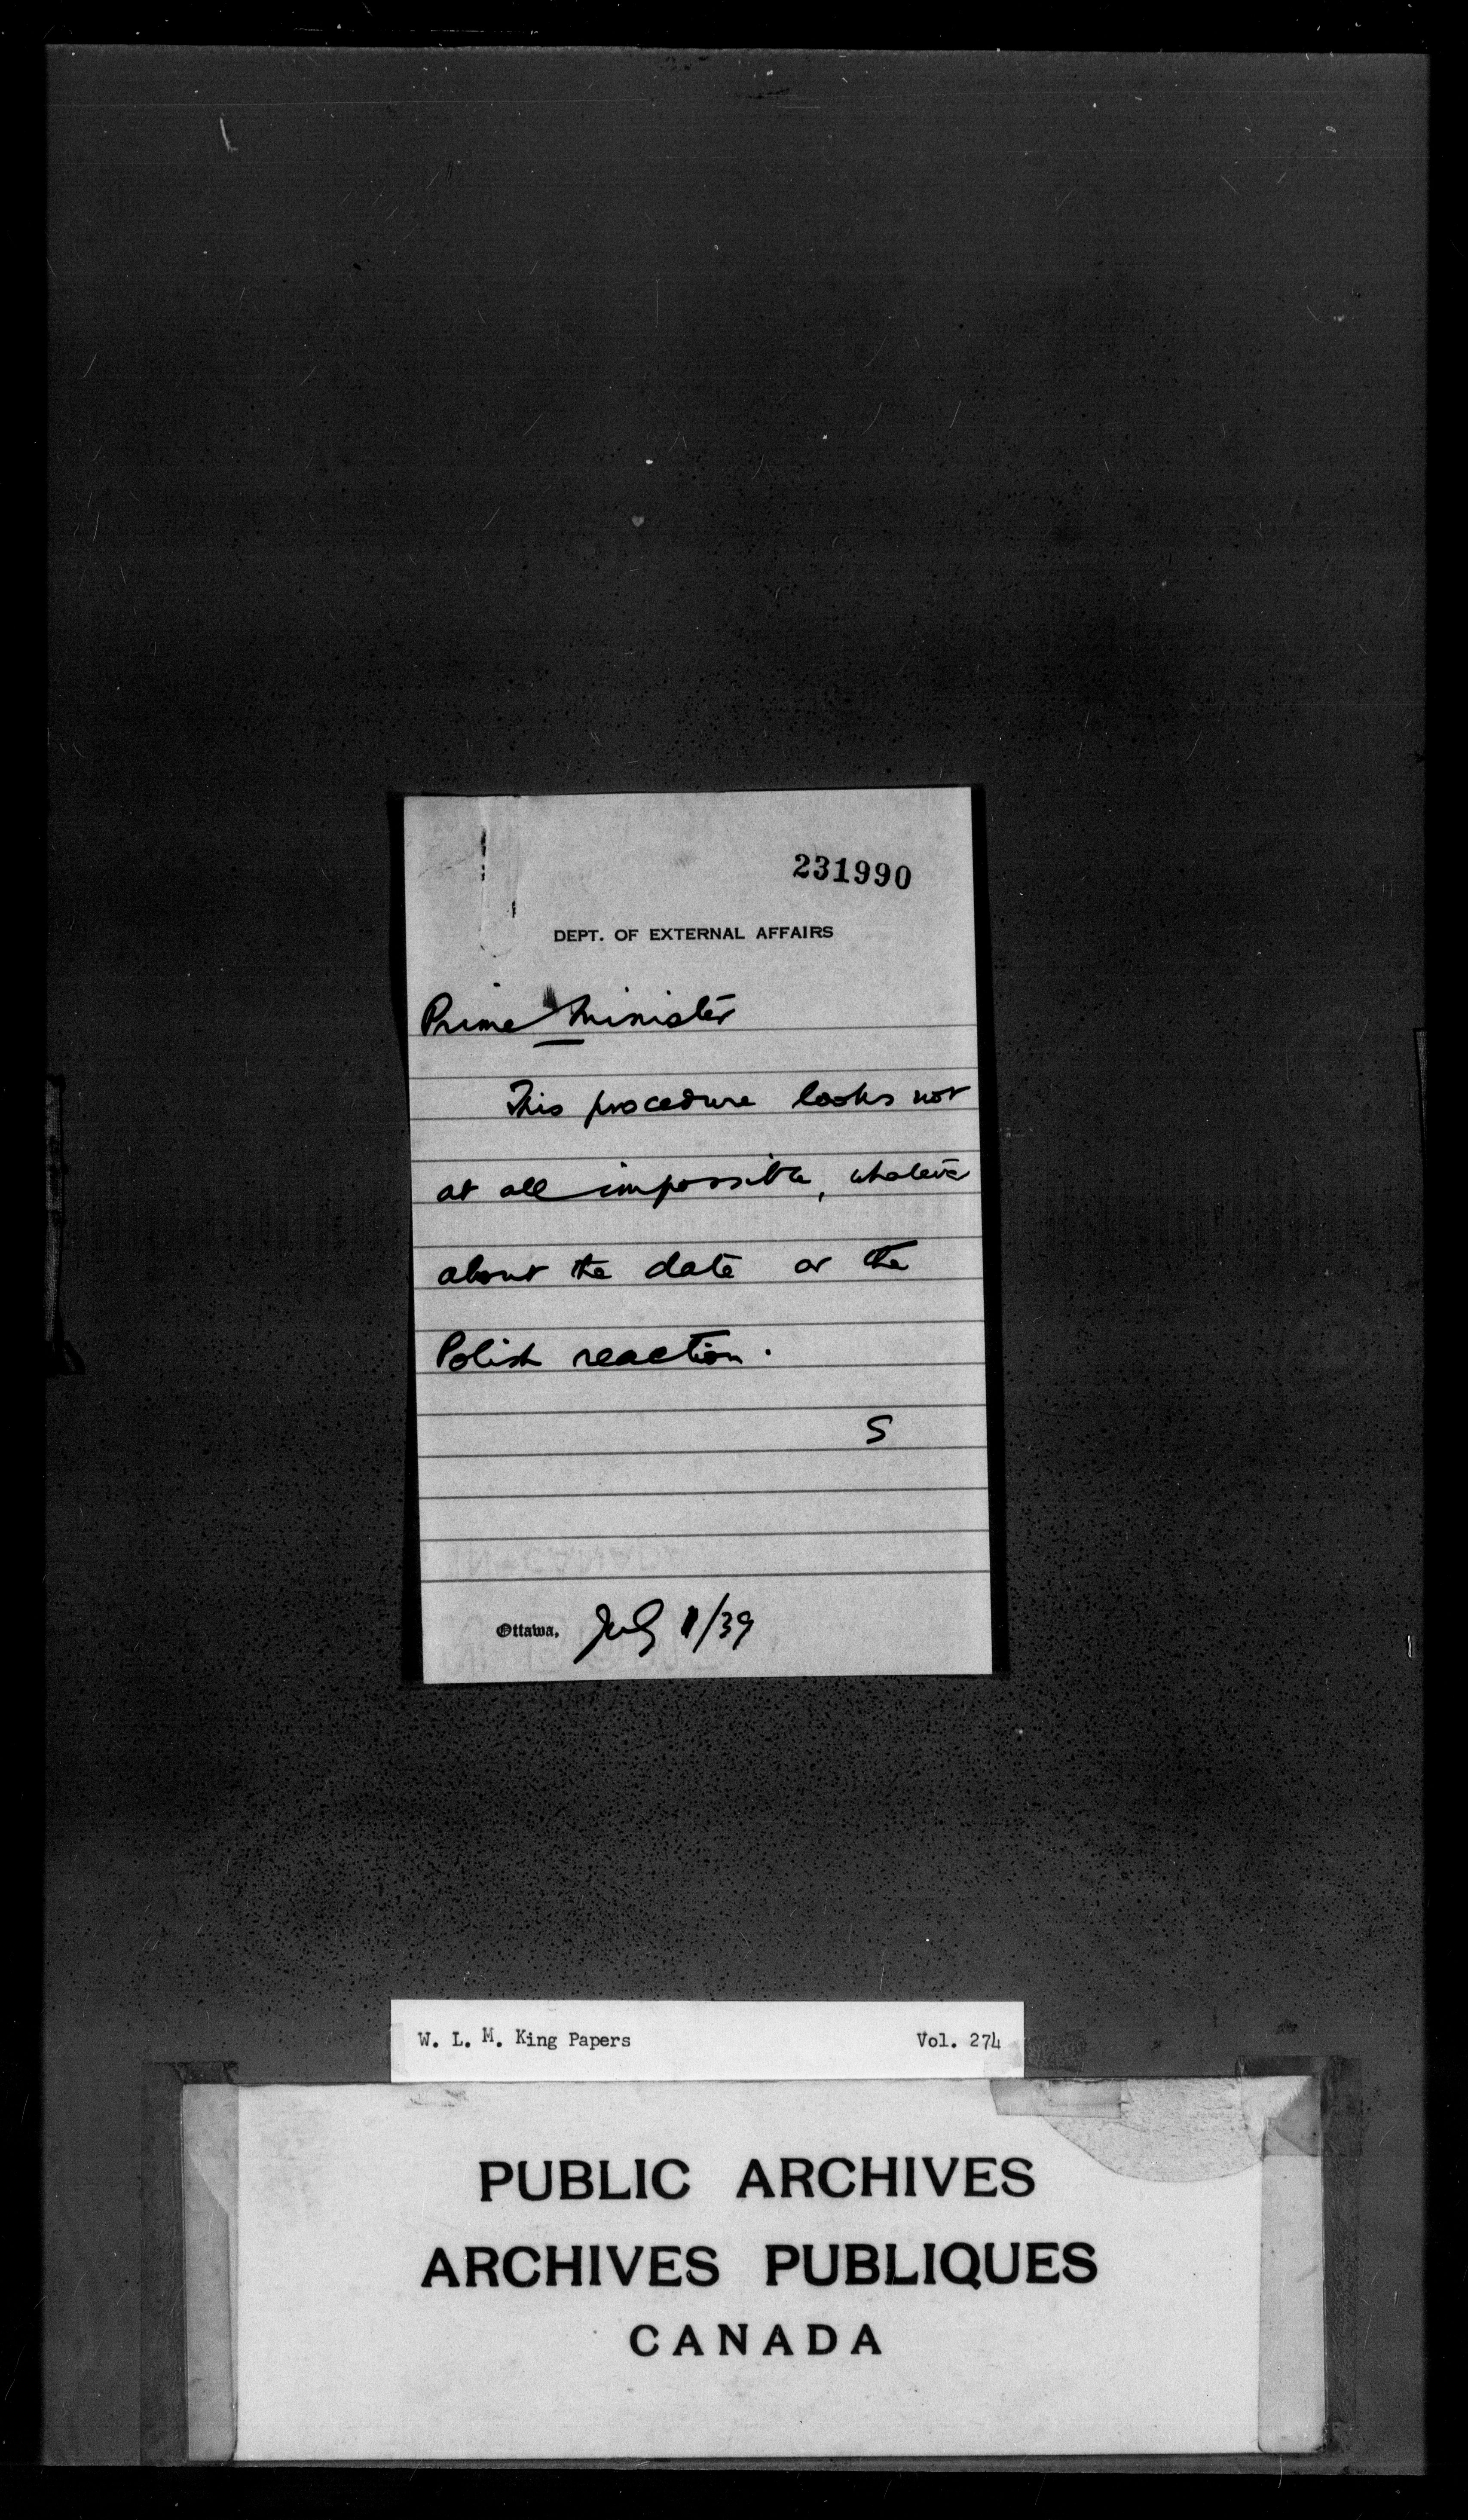 231990
DEPT. OF EXTERNAL AFFAIRS
Prime Minister
This procedure looks not
at all impossible, whatever
about the date or the
Polish reaction.
S
Ottawa, July 11/39
W. L. M. King Papers Vol. 274
PUBLIC ARCHIVES
ARCHIVES PUBLIQUES
CANADA